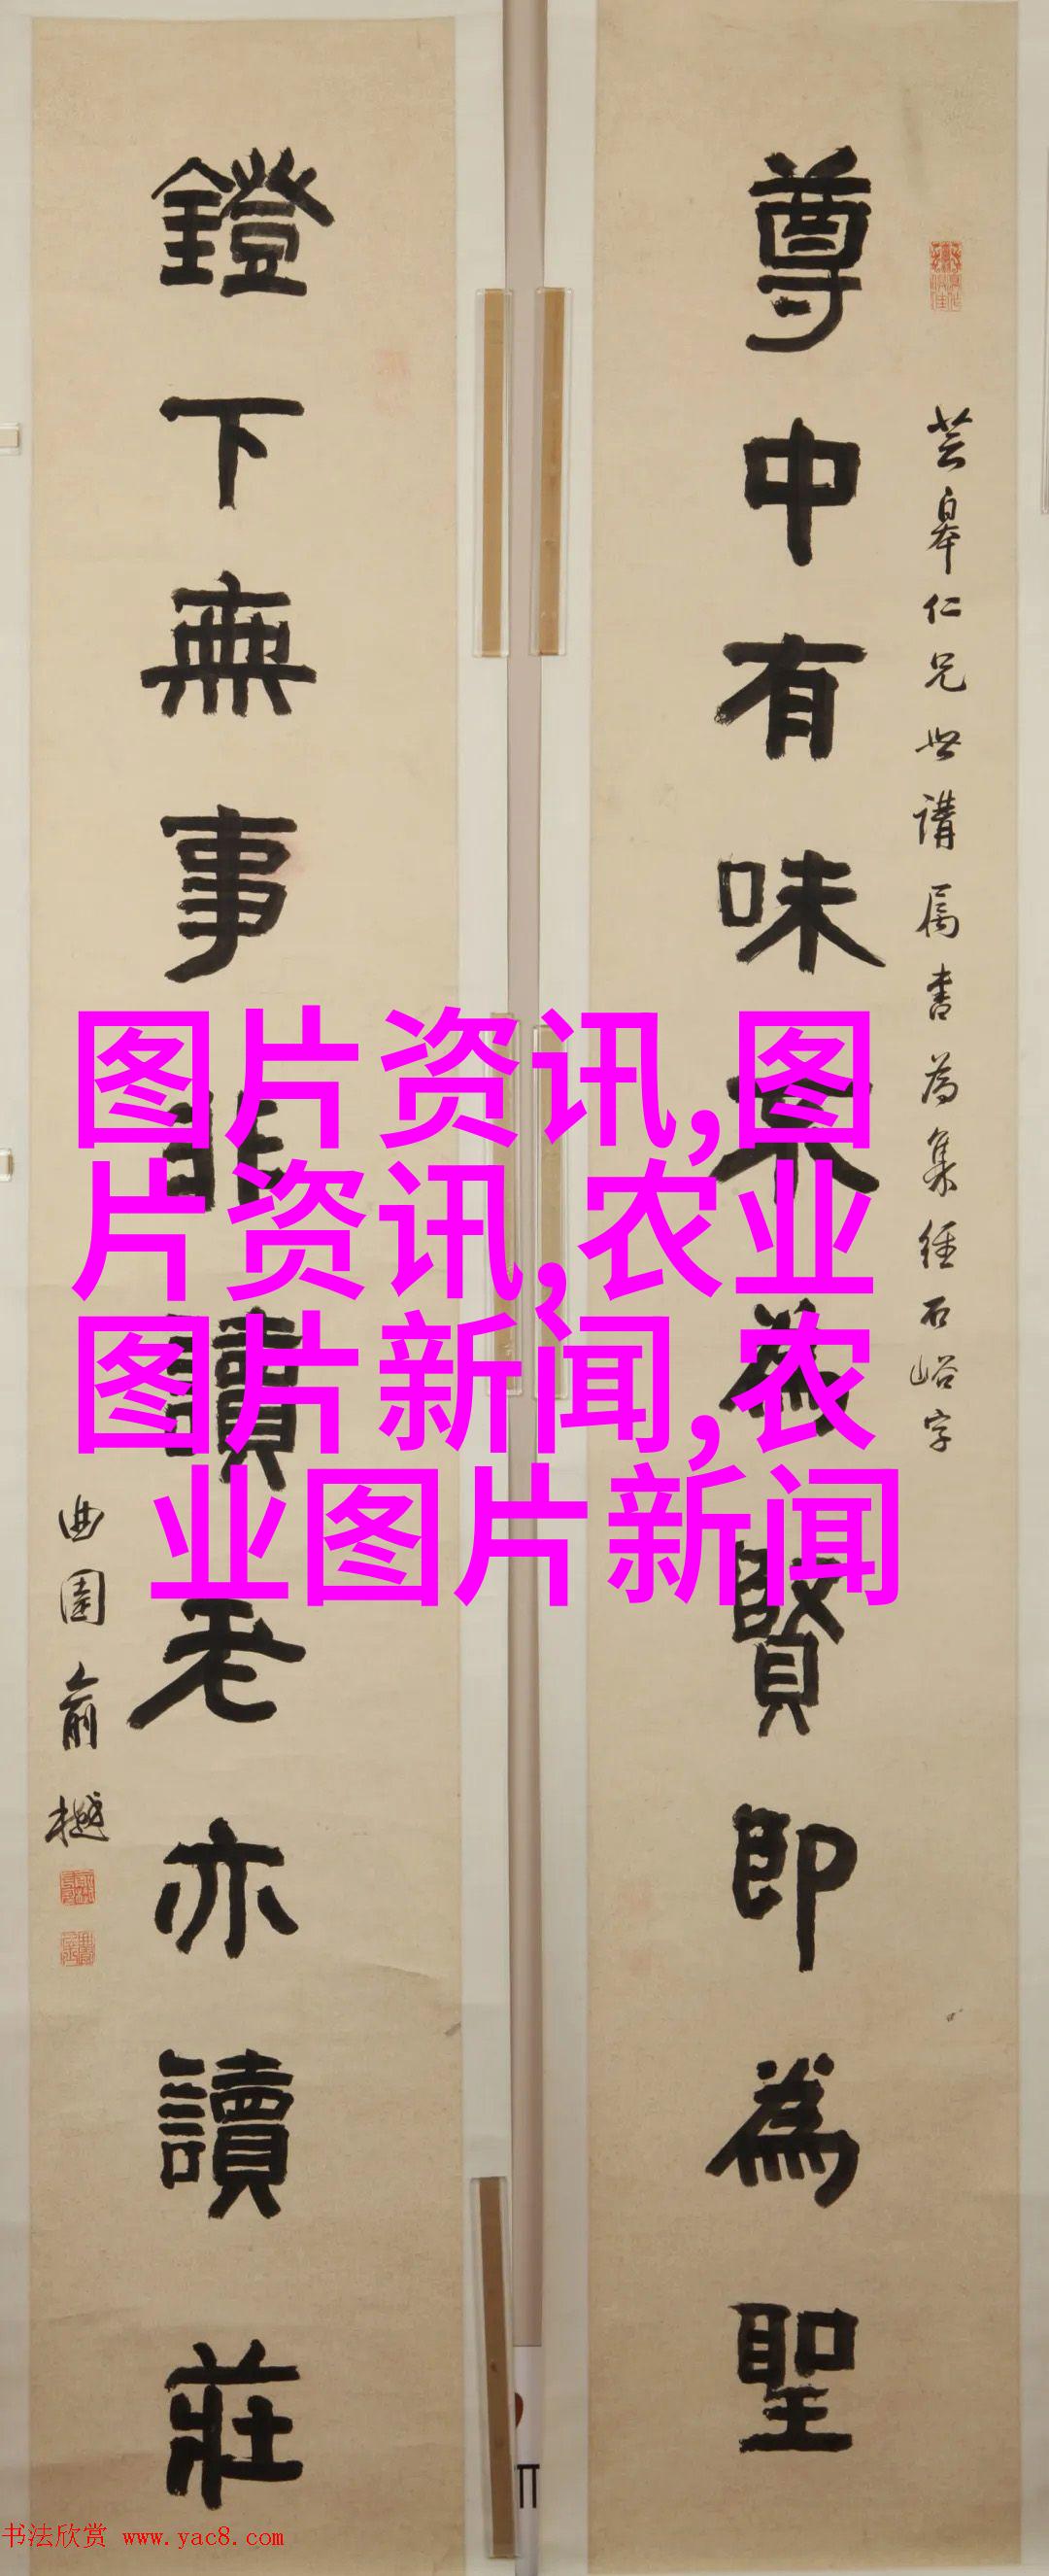 芸皋仁兄世講屬書為集經石峪字
尊中有味
為賢即為聖
鐙下無事非讀老亦讀莊
曲園俞樾
图片资讯,图
片资讯,农业
图片新闻,农
业图片新闻
书法欣赏 www.yac8.com